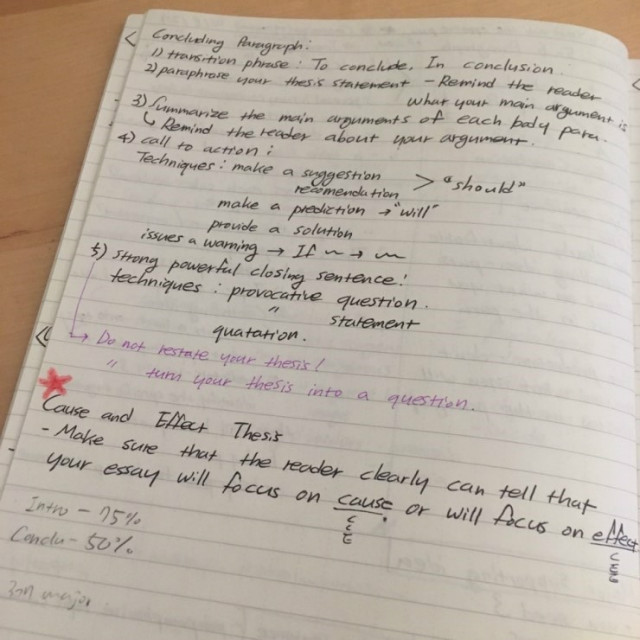 Concluding Paragraph:
1) transition phrase: To conclude, In conclusion.
2) paraphrase your thesis statement - Remind the reader
what your main argument is
3) Summarize the main arguments of each body para.
↳ Remind the reader about your argument.
4) call to action:
Techniques: make a suggestion
recomendation > "should"
make a prediction → "will"
provide a solution
issues a warning → If ~ → ~
5) strong powerful closing sentence!
techniques: provocative question.
" statement
quatation.
→ Do not restate your thesis!
" turn your thesis into a question.
Cause and Effect Thesis
- Make sure that the reader clearly can tell that
your essay will focus on cause or will focus on effect
Intro - 75%
Conclu - 50%
major